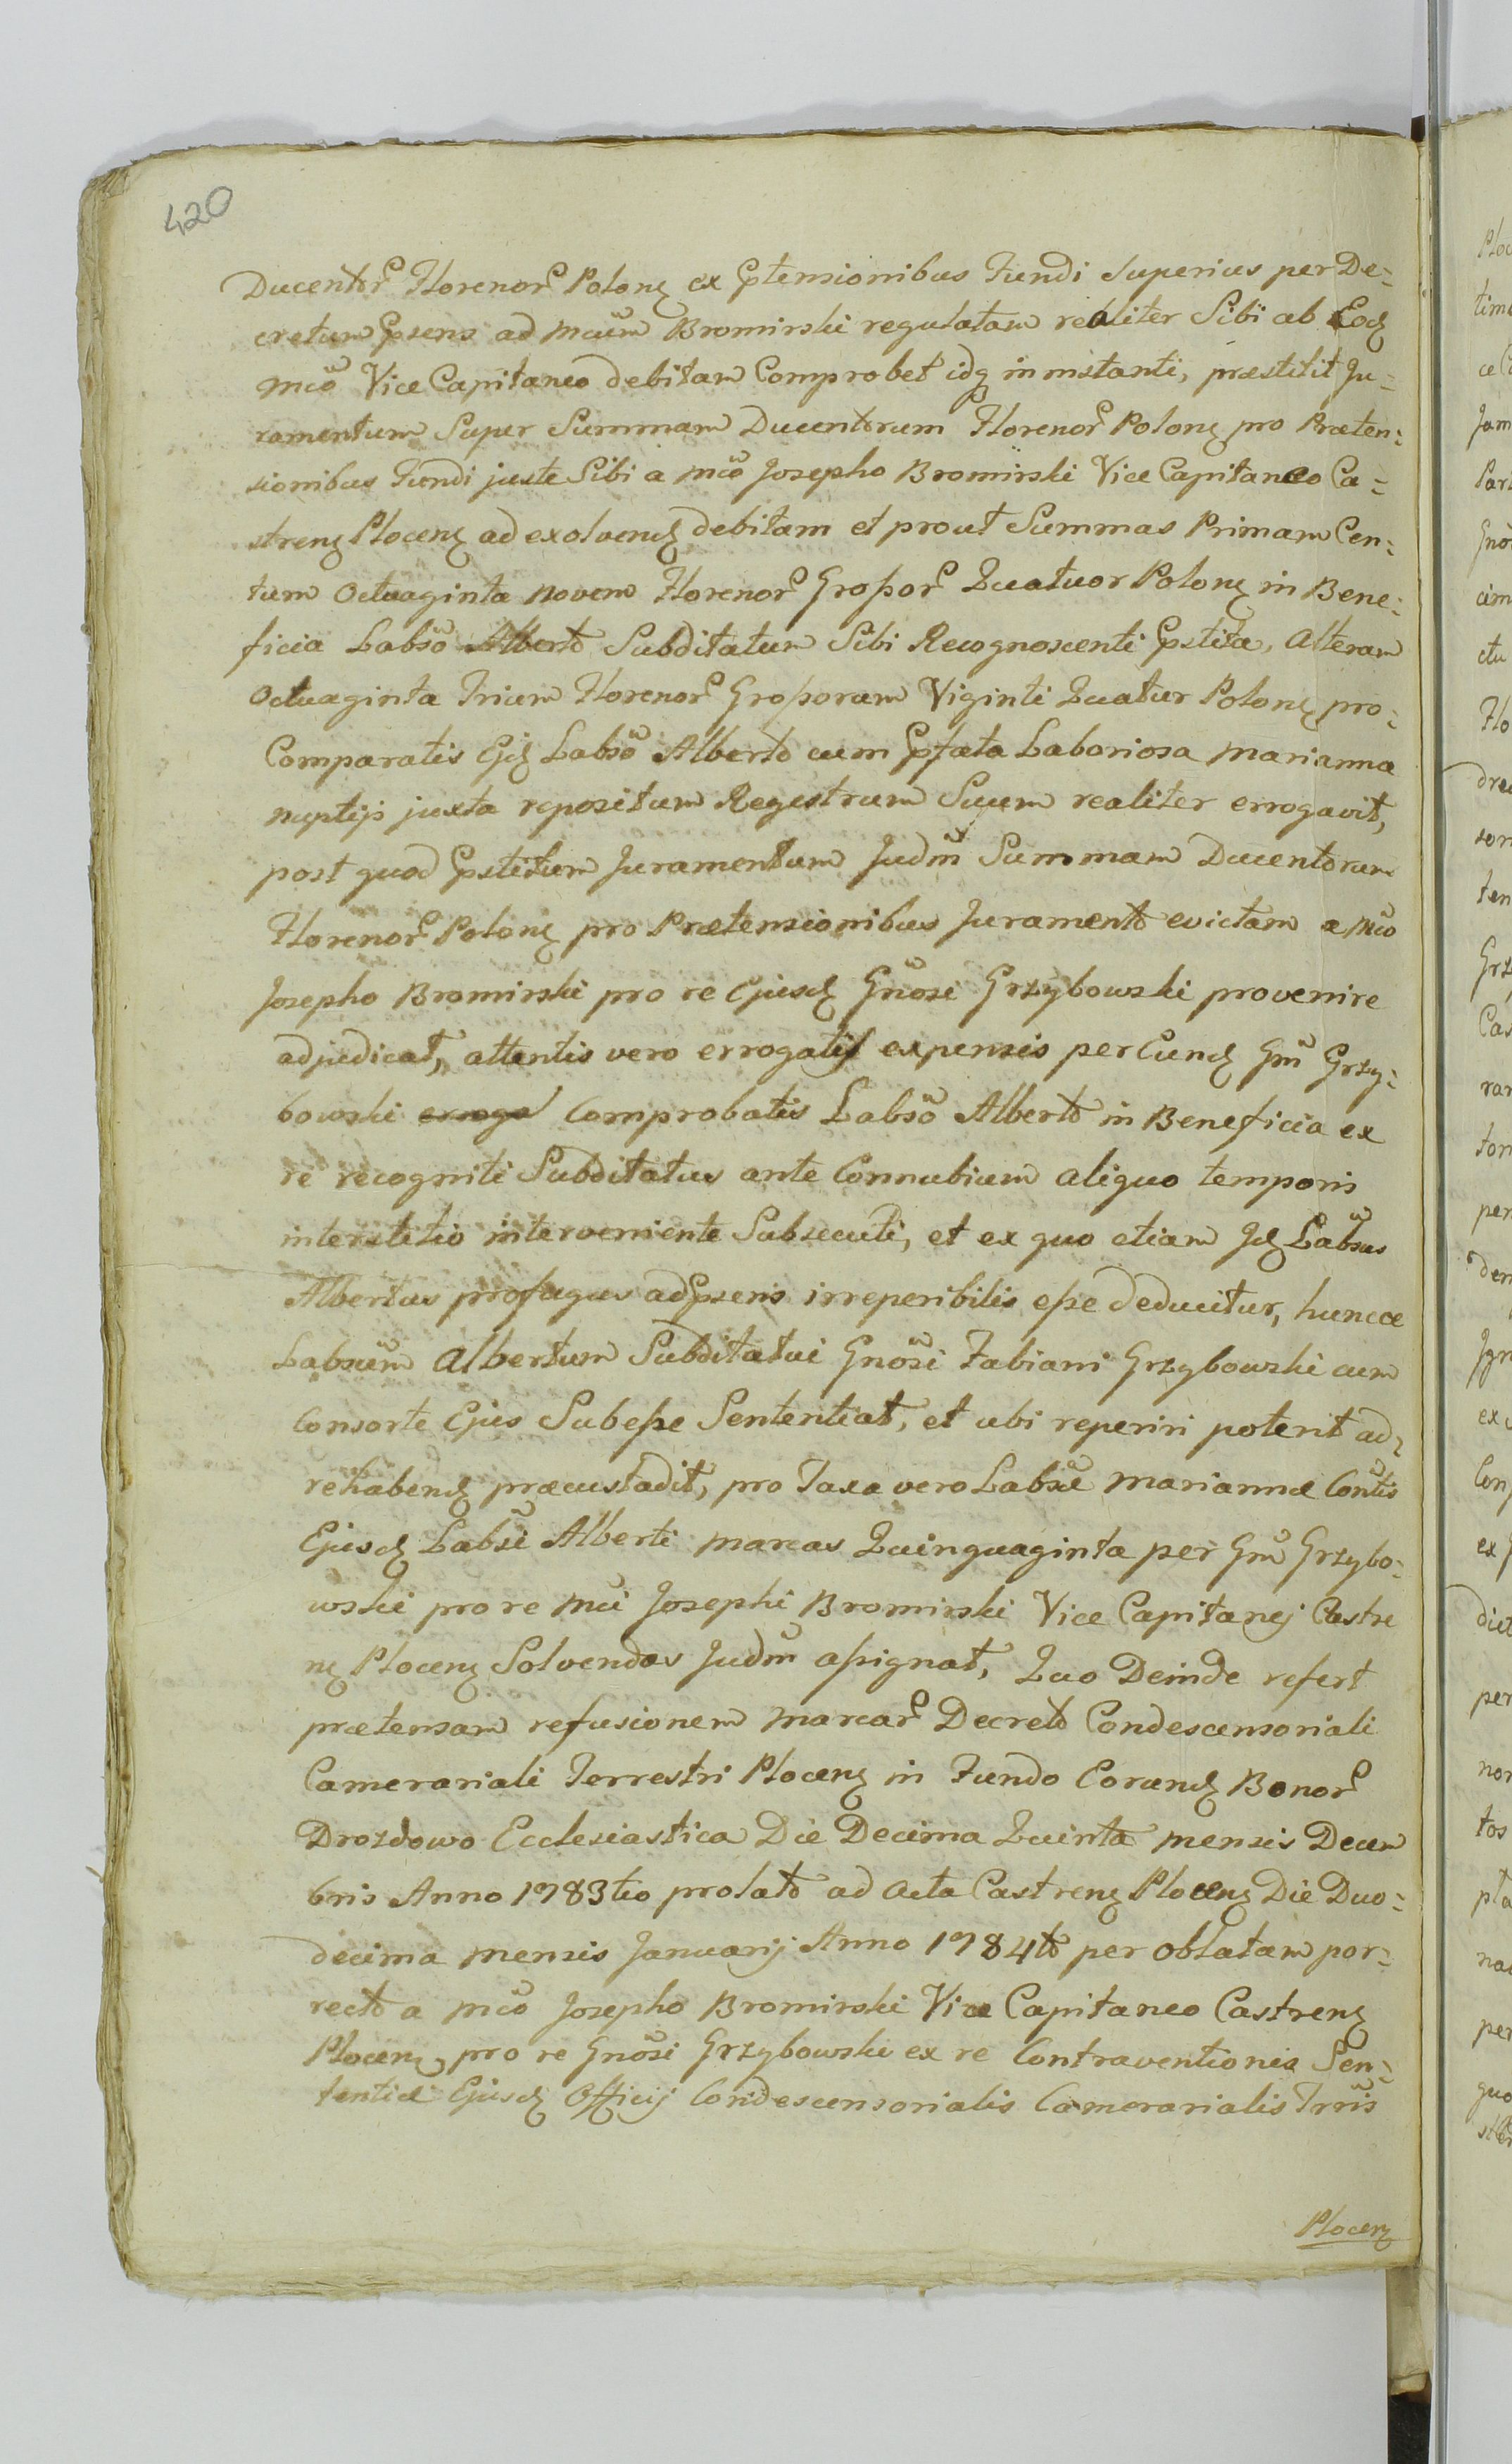 420
Ducentor Florenor Polonȝ ex Ptensionibus Fundi Superius per De=
cretum Psens ad Mcum Bromirski regulatam realiter Sibi ab Eodȝ
Mco Vice Capitaneo debitam Comprobet idqȝ in instanti, præstitit Ju=
ramentum Super Summam Ducentorum Florenor Polonȝ pro Præten=
sionibus Fundi juste Sibi a Mco Josepho Bromirski Vice Capitaneo Ca=
strenȝ Plocenȝ ad exolvendȝ debitam et prout Summas Primam Cen=
tum Octuaginta Novem Florenor Grossor Quatuor Polonȝ in Bene=
ficia Labso Alberto Subditatum Sibi Recognoscenti Pstita, Alteram
Octuaginta Trium Florenor Grossorum Viginti Quatuor Polonȝ pro=
Comparatis Ejdȝ Labso Alberto cum Pfata Laboriosa Marianna
nuptijs juxta repositum Regestrum Suum realiter errogavit,
post quod Pstitum Juramentum Judm Summam Ducentorum
Florenor Polonȝ pro Prætensionibus Juramento evictam a Mco
Josepho Bromirski pro re Ejusdȝ Gnosi Grzybowski provenire
adjudicat, attentis vero errogatis expensis per Eundȝ Gnm Grzy=
bowski erroga Comprobatis Labso Alberto in Beneficia ex
re recogniti Subditatus ante Connubium aliquo temporis
interstitio interveniente Subsecuti, et ex quo etiam Jdȝ Labsus
Albertus profugus ad Psens irreperibilis esse deducitur, huncce
Labsum Albertum Subditatui Gnosi Fabiani Grzybowski cum
Consorte Ejus Subesse Sententiat, et ubi reperiri poterit ad=
rehabendȝ præcustadit, pro Taxa vero Labsæ Mariannæ Contis
Ejusdȝ Labsi Alberti marcas Quinquaginta per Gnm Grzybo=
wski pro re Mci Josephi Bromirski Vice Capitanej Castre
nȝ Plocenȝ Solvendas Judm assignat, Quo Deinde refert
prætensam refusionem Marcar Decreto Condescensoriali
Camerariali Terrestri Plocenȝ in Fundo Eorundȝ Bonor
Drozdowo Ecclesiastica Die Decima Quinta mensis Decem
bris Anno 1783tio prolato ad Acta Castrenȝ Plocenȝ Die Duo=
decima mensis Januarij Anno 1784to per oblatam por=
recto a Mco Josepho Bromirski Vice Capitaneo Castrenȝ
Plocenȝ pro re Gnosi Grzybowski ex re Contraventionis Sen=
tentiæ Ejusdȝ Officij Condescensorialis Camerarialis Trris
Plocenȝ